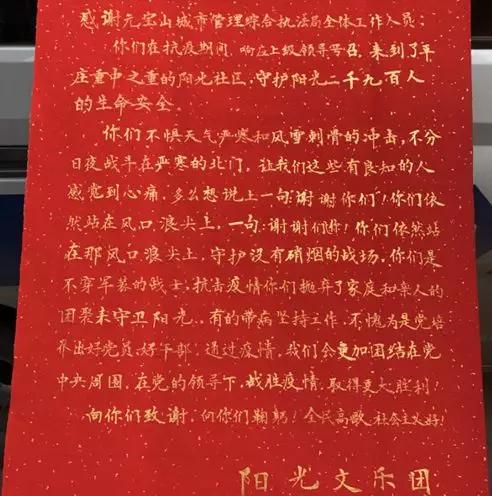 感谢元宝山城市管理综合执法局全体工作人员:
你们在抗疫期间,响应上级领导号召,来到了平
庄重中之重的阳光社区,守护阳光二千九百人
的生命安全。
你们不惧天气严寒和风雪刺骨的冲击,不分
日夜战斗在严寒的北门,让我们这些有良知的人
感觉到心痛,多么想说上一句:谢谢你们!你们依
然站在风口浪尖上,一句:谢谢你们!你们依然站
在那风口浪尖上,守护没有硝烟的战场,你们是
不穿军装的战士,抗击疫情你们抛弃了家庭和亲人的
团聚来守卫阳光、有的带病坚持工作,不愧为是党培
养出好党员,好干部,通过疫情,我们会更加团结在党
中央周围,在党的领导下,战胜疫情,取得更大胜利!
向你们致谢,向你们鞠躬!全民高歌社会主义好!
阳光文乐团